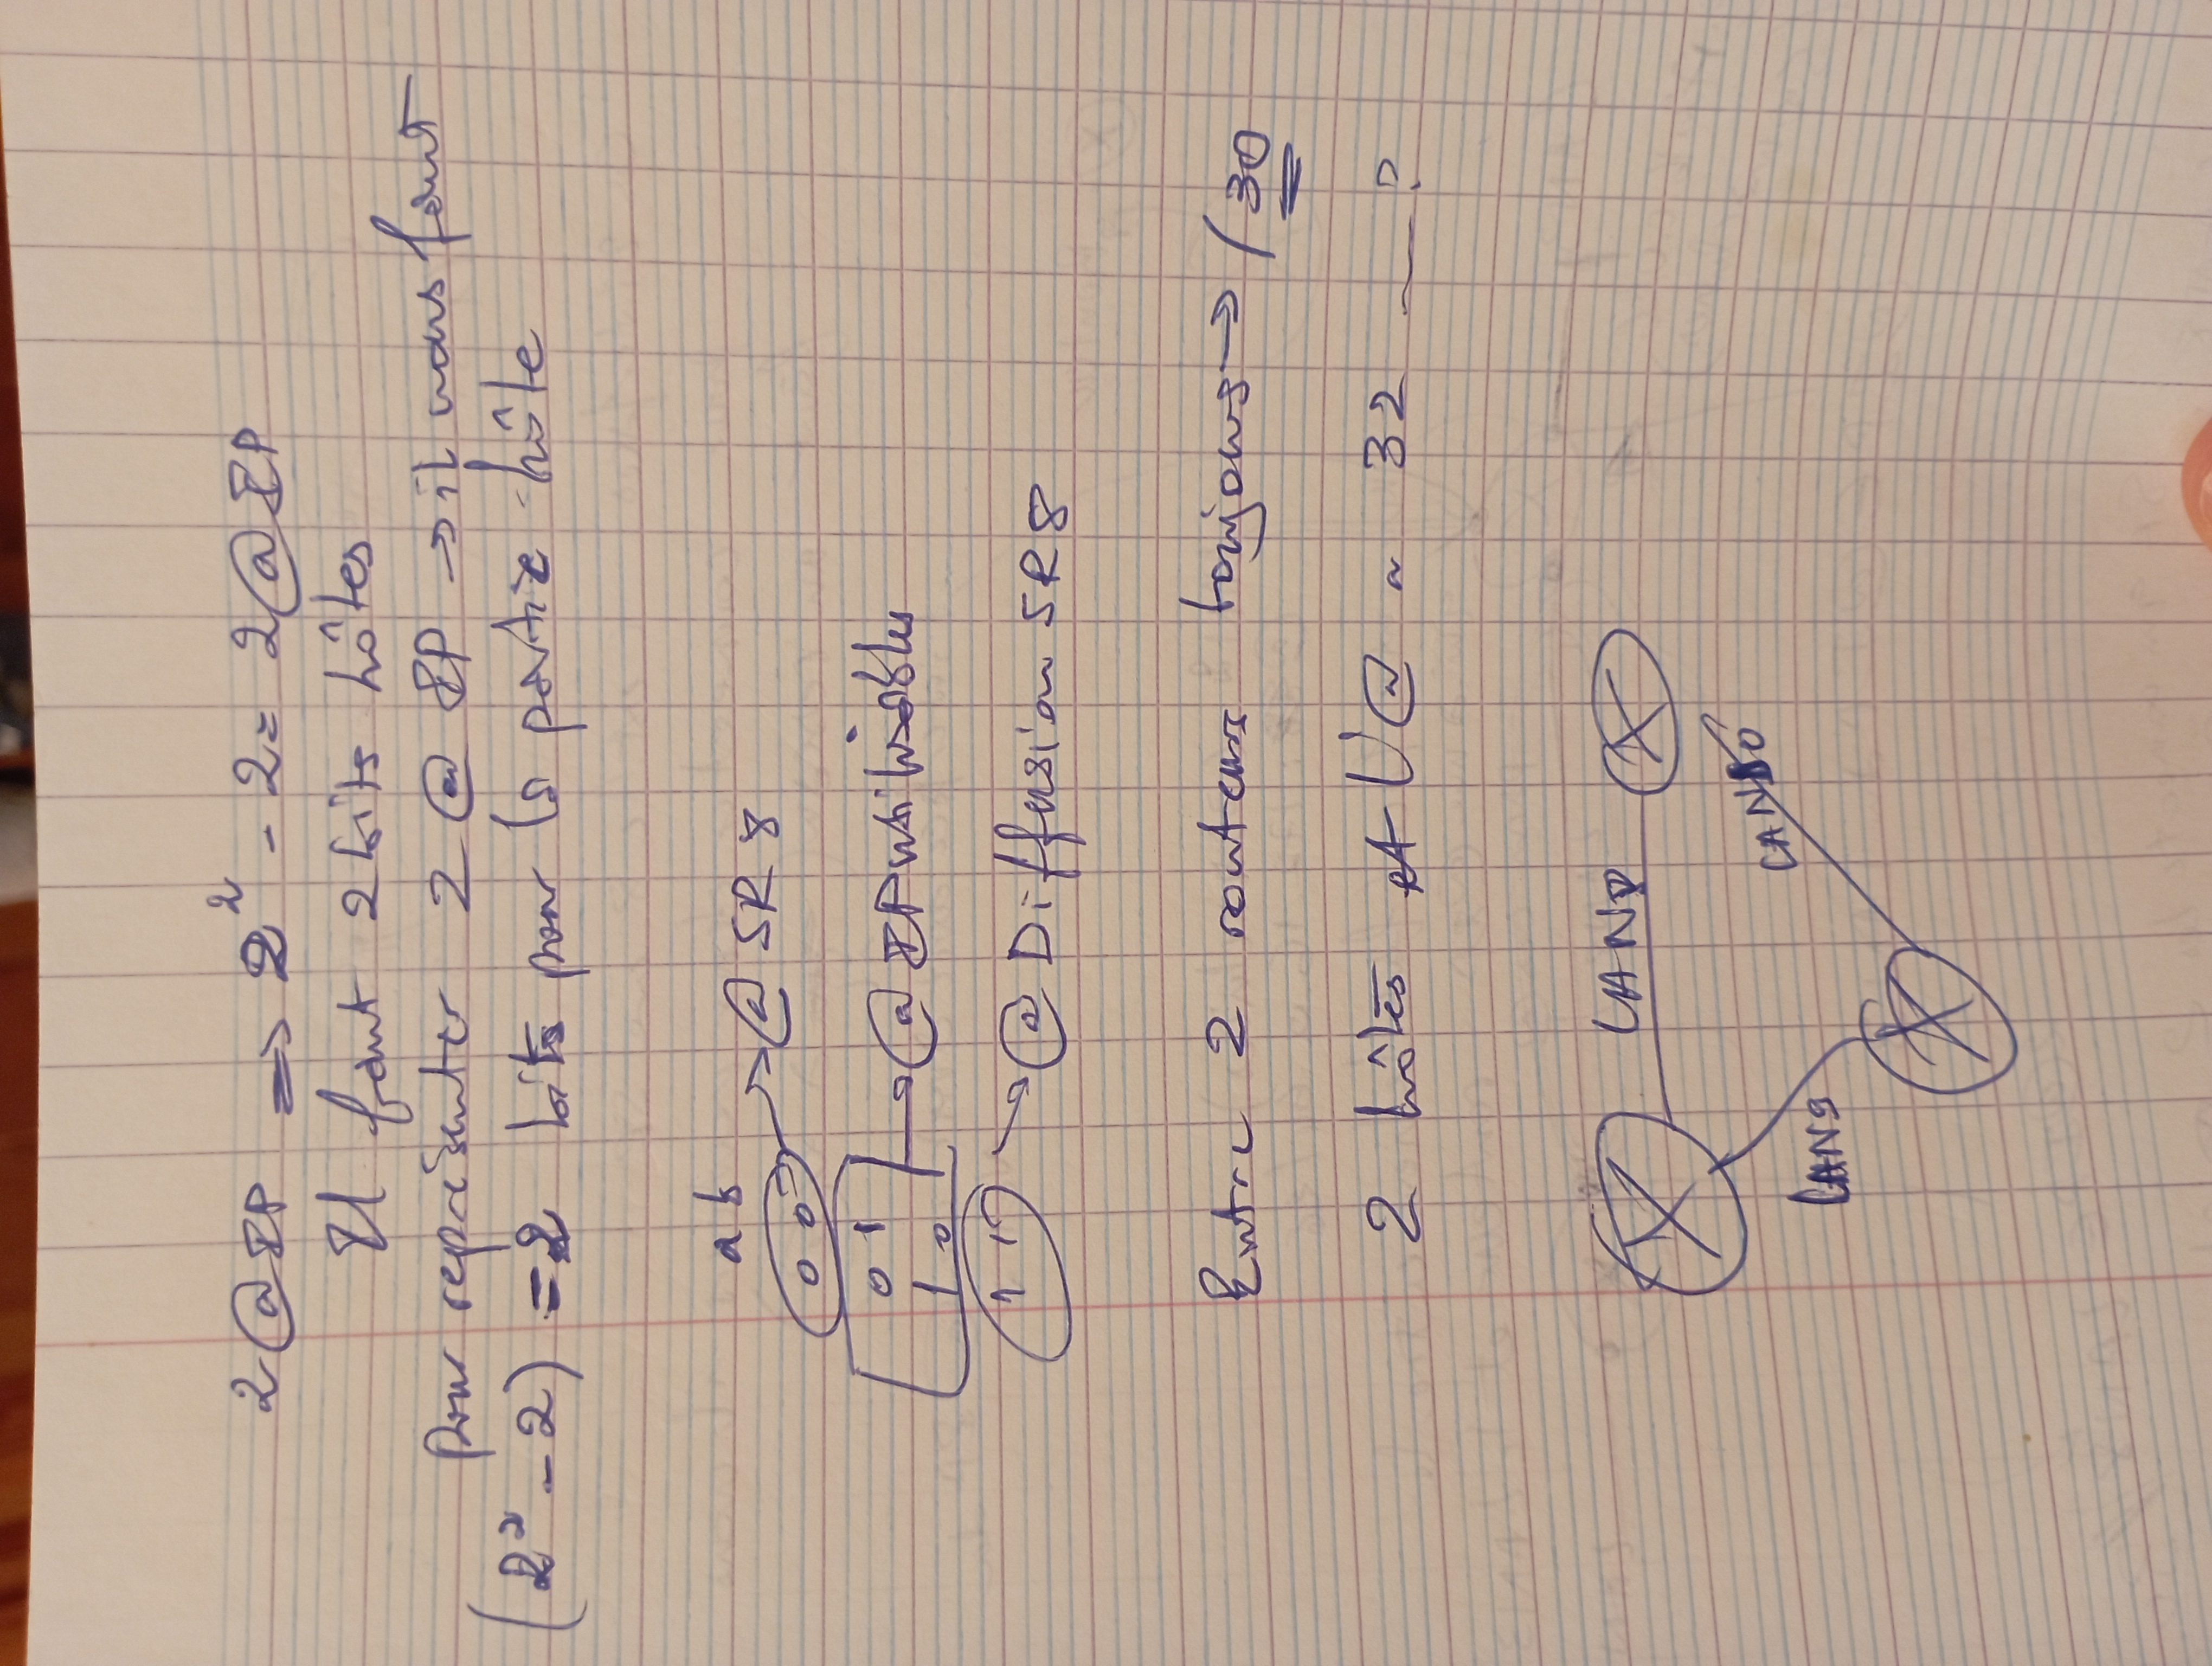 2 @ IP => 2² - 2 = 2 @ IP
Il faut 2 bits hôtes
Pour représenter 2 @ IP → il nous faut
(2² - 2) = 2 bits pour la partie hôte
a b
0 0 → @ SR 8
0 1
1 0 → @ IP utilisables
1 1 → @ Diffusion SR 8
Entre 2 routeurs toujours → /30
2 hôtes et l'@ a 32 ?
LAN8
LAN10
LAN9